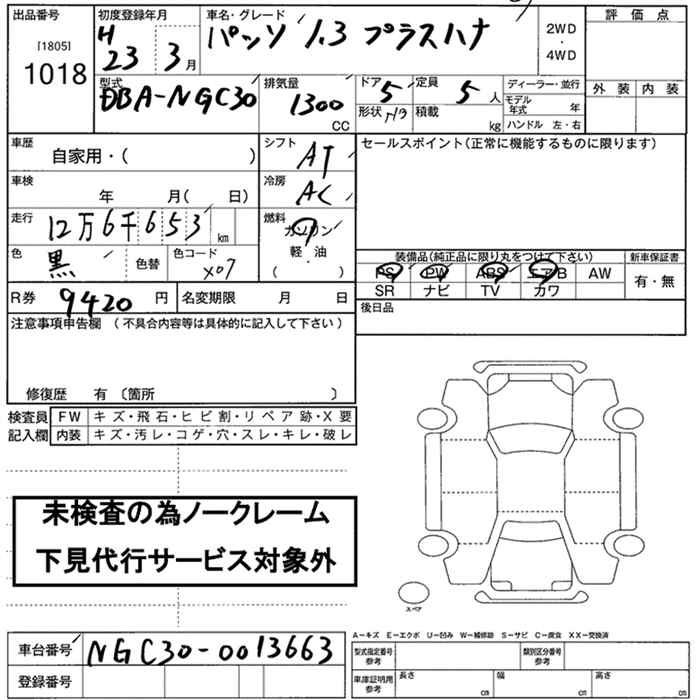 出品番号
[1805]
1018
初度登録年月
H
23 3月
車名・グレード
パッソ 1.3 プラスハナ
2WD
・
4WD
評価点
外装 内装
型式
DBA-NGC30
排気量
1300
CC
ドア 5
形状 H/B
定員 5 人
積載 kg
ディーラー・並行
モデル年式 年
ハンドル 左・右
車歴
自家用・( )
シフト
AT
セールスポイント(正常に機能するものに限ります)
車検
年 月( 日)
冷房
AC
走行
12万6千653 km
燃料
ガソリン
軽・油
( )
色
黒
色替
色コード
X07
装備品(純正品に限り丸をつけて下さい)
PS PW ABS エアB AW
SR ナビ TV カワ
新車保証書
有・無
R券 9420 円
名変期限 月 日
後日品
注意事項申告欄 (不具合内容等は具体的に記入して下さい)
修復歴 有 〔箇所 〕
検査員
記入欄
FW キズ・飛石・ヒビ割・リペア跡・X要
内装 キズ・汚レ・コゲ・穴・スレ・キレ・破レ
未検査の為ノークレーム
下見代行サービス対象外
スペア
車台番号 NGC30-0013663
登録番号
A−キズ E−エクボ U−凹み W−補修跡 S−サビ C−腐食 XX−交換済
型式指定番号
参考
類別区分番号
参考
車庫証明用
参考
長さ cm
幅 cm
高さ cm